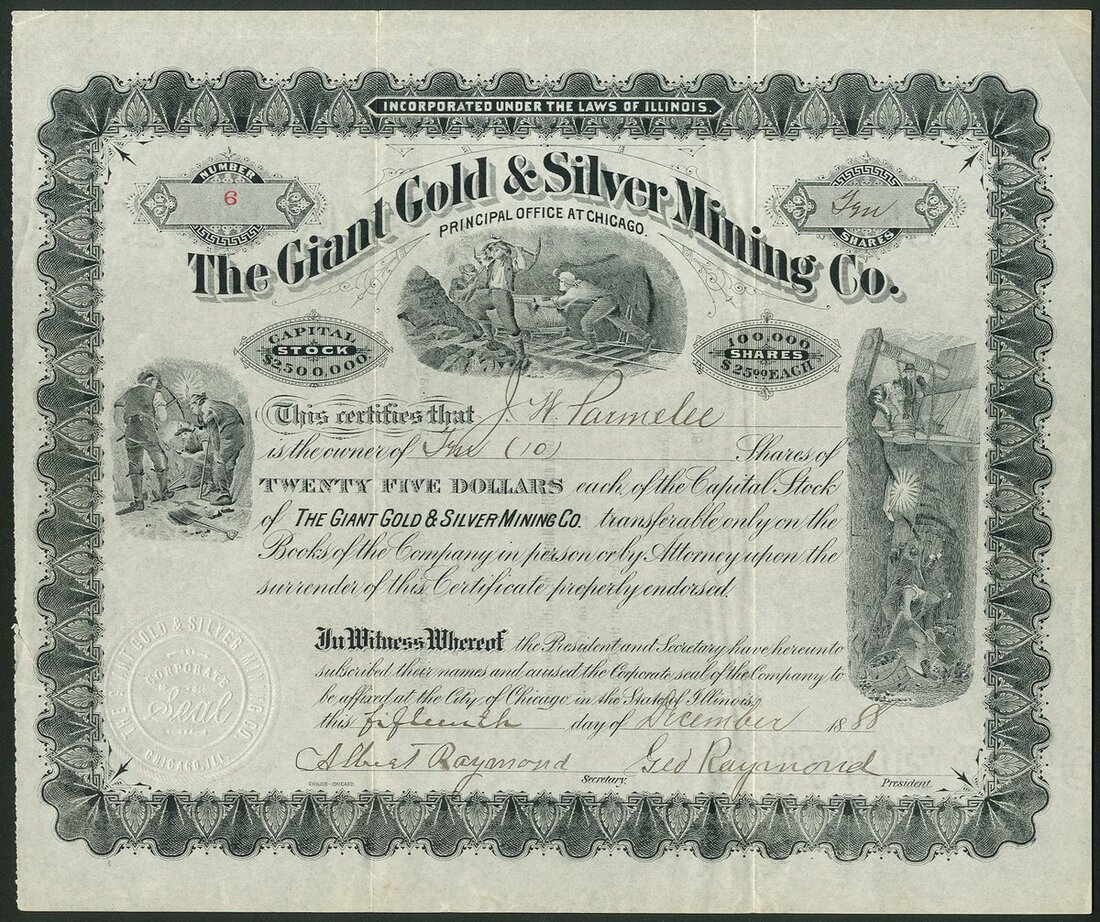 INCORPORATED UNDER THE LAWS OF ILLINOIS.
NUMBER
6
Ten
SHARES
The Giant Gold & Silver Mining Co.
PRINCIPAL OFFICE AT CHICAGO.
CAPITAL
STOCK
$2500,000
100,000
SHARES
$25.00 EACH
This certifies that J. H. Parmelee
is the owner of Ten (10) Shares of
TWENTY FIVE DOLLARS each, of the Capital Stock
of THE GIANT GOLD & SILVER MINING CO. transferable only on the
Books of the Company in person or by Attorney upon the
surrender of this Certificate properly endorsed.
In Witness Whereof the President and Secretary have hereunto
subscribed their names and caused the Corporate seal of the Company to
be affixed at the City of Chicago, in the State of Illinois,
this fifteenth day of December 1888
Albert Raymond Secretary. Geo Raymond President.
THE GIANT GOLD & SILVER MINING CO.
CORPORATE
Seal
CHICAGO, ILL.
CHILDS - CHICAGO